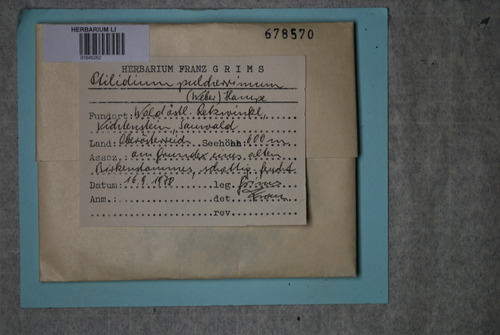 HERBARIUM LI
678570
HERBARIUM FRANZ GRIMS
Ptilidium pulcherrimum
(Weber) Hampe
Fundort: Waldöstl.
Vichtenstein, Sauwald
Land: Oberösterreich Seehöhe 600 m
Assoz. am Grunde eines alten
Birkenstammes, schattig, feucht
Datum: 16.9.1978 leg. Grims
Anm.: det. Grims
rev.